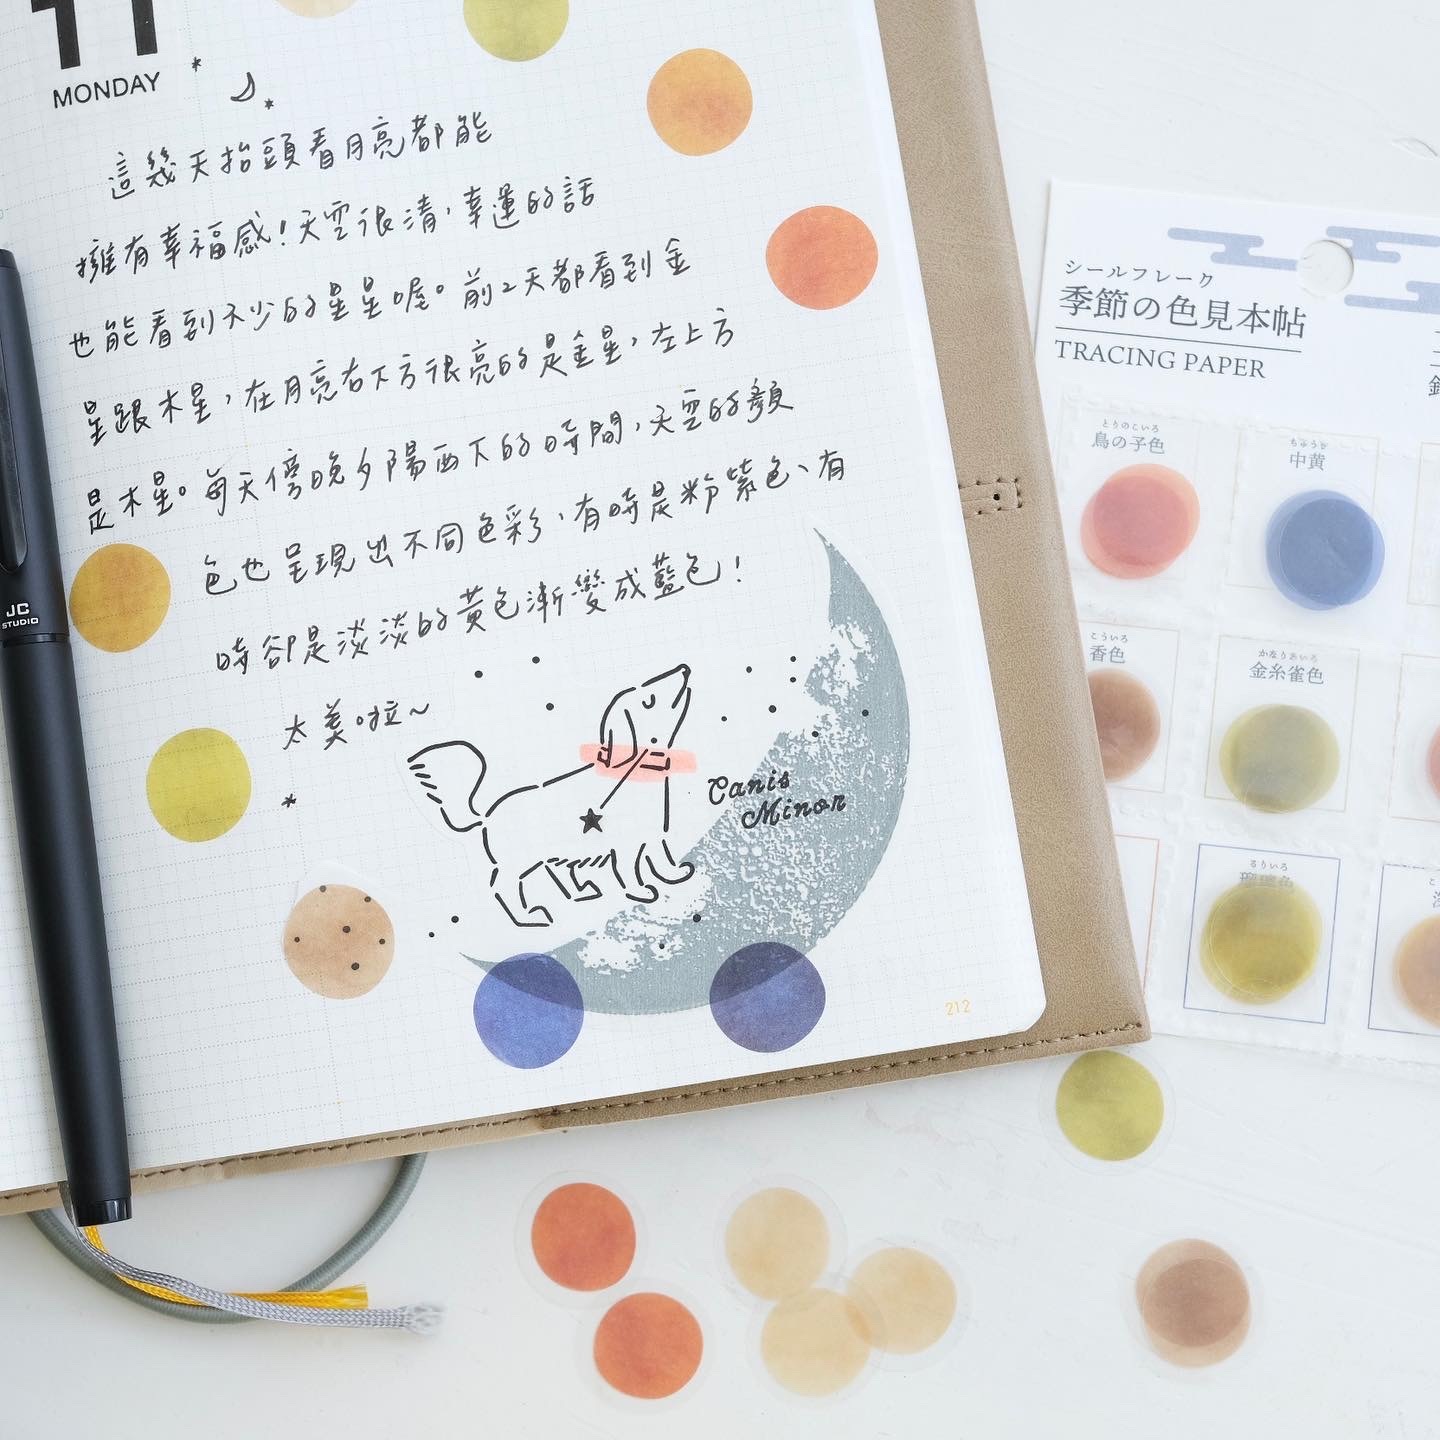 11
MONDAY
這幾天抬頭看月亮都能
擁有幸福感!天空很清,幸運的話
也能看到不少的星星喔。前2天都看到金
星跟木星,在月亮右下方很亮的是金星,左上方
是木星。每天傍晚夕陽西下的時間,天空的顏
色也呈現出不同色彩,有時是粉紫色、有
時卻是淡淡的黃色漸變成藍色!
太美啦~
Canis
Minor
212
JC
STUDIO
シールフレーク
季節の色見本帖
TRACING PAPER
とりのこいろ
鳥の子色
ちゅうき
中黄
こういろ
香色
かなりあいろ
金糸雀色
るりいろ
瑠璃色